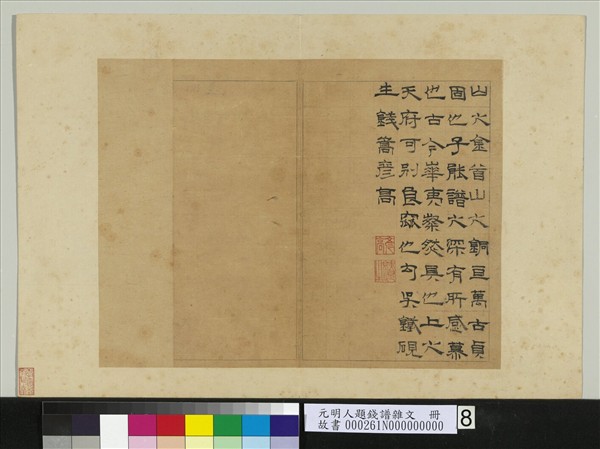 山之金首山之銅亘萬古貞
固也子能譜之深有所感慕
也古今華夷粲然具也上之
天府可別良窳也句吳鐵硯
生錢彥高
元明人題錢譜雜文 冊
故書 000261N000000000
8